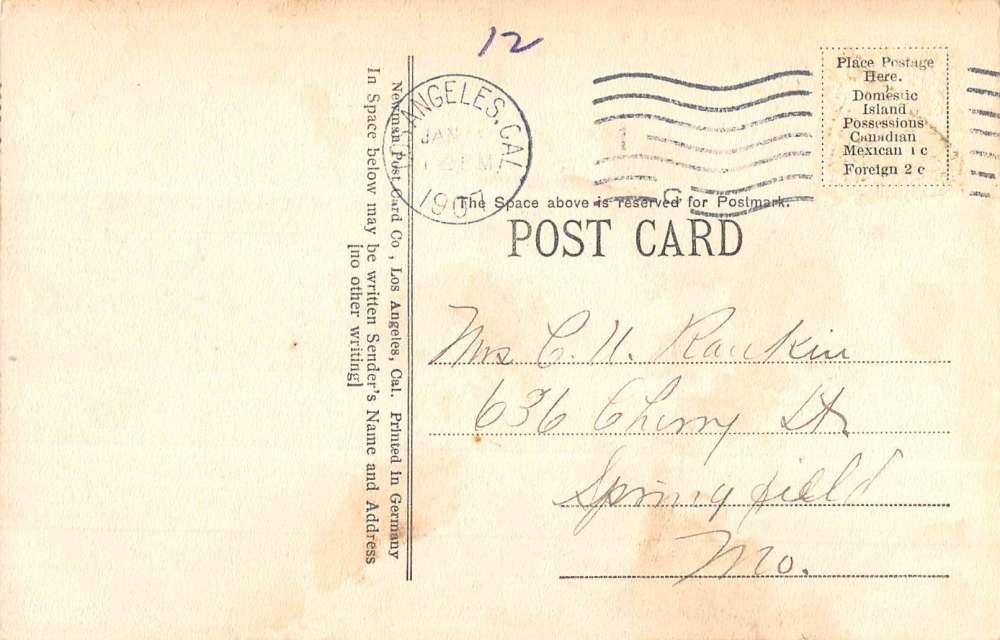 12
Newman Post Card Co., Los Angeles, Cal. Printed in Germany
In Space below may be written Sender's Name and Address
[no other writing]
ANGELES, CAL
JAN
1907
Place Postage
Here.
Domestic
Island
Possessions
Canadian
Mexican 1 c
Foreign 2 c
The Space above is reserved for Postmark.
POST CARD
Mrs C. U. Rankin
636 Cherry St.
Springfield
Mo.